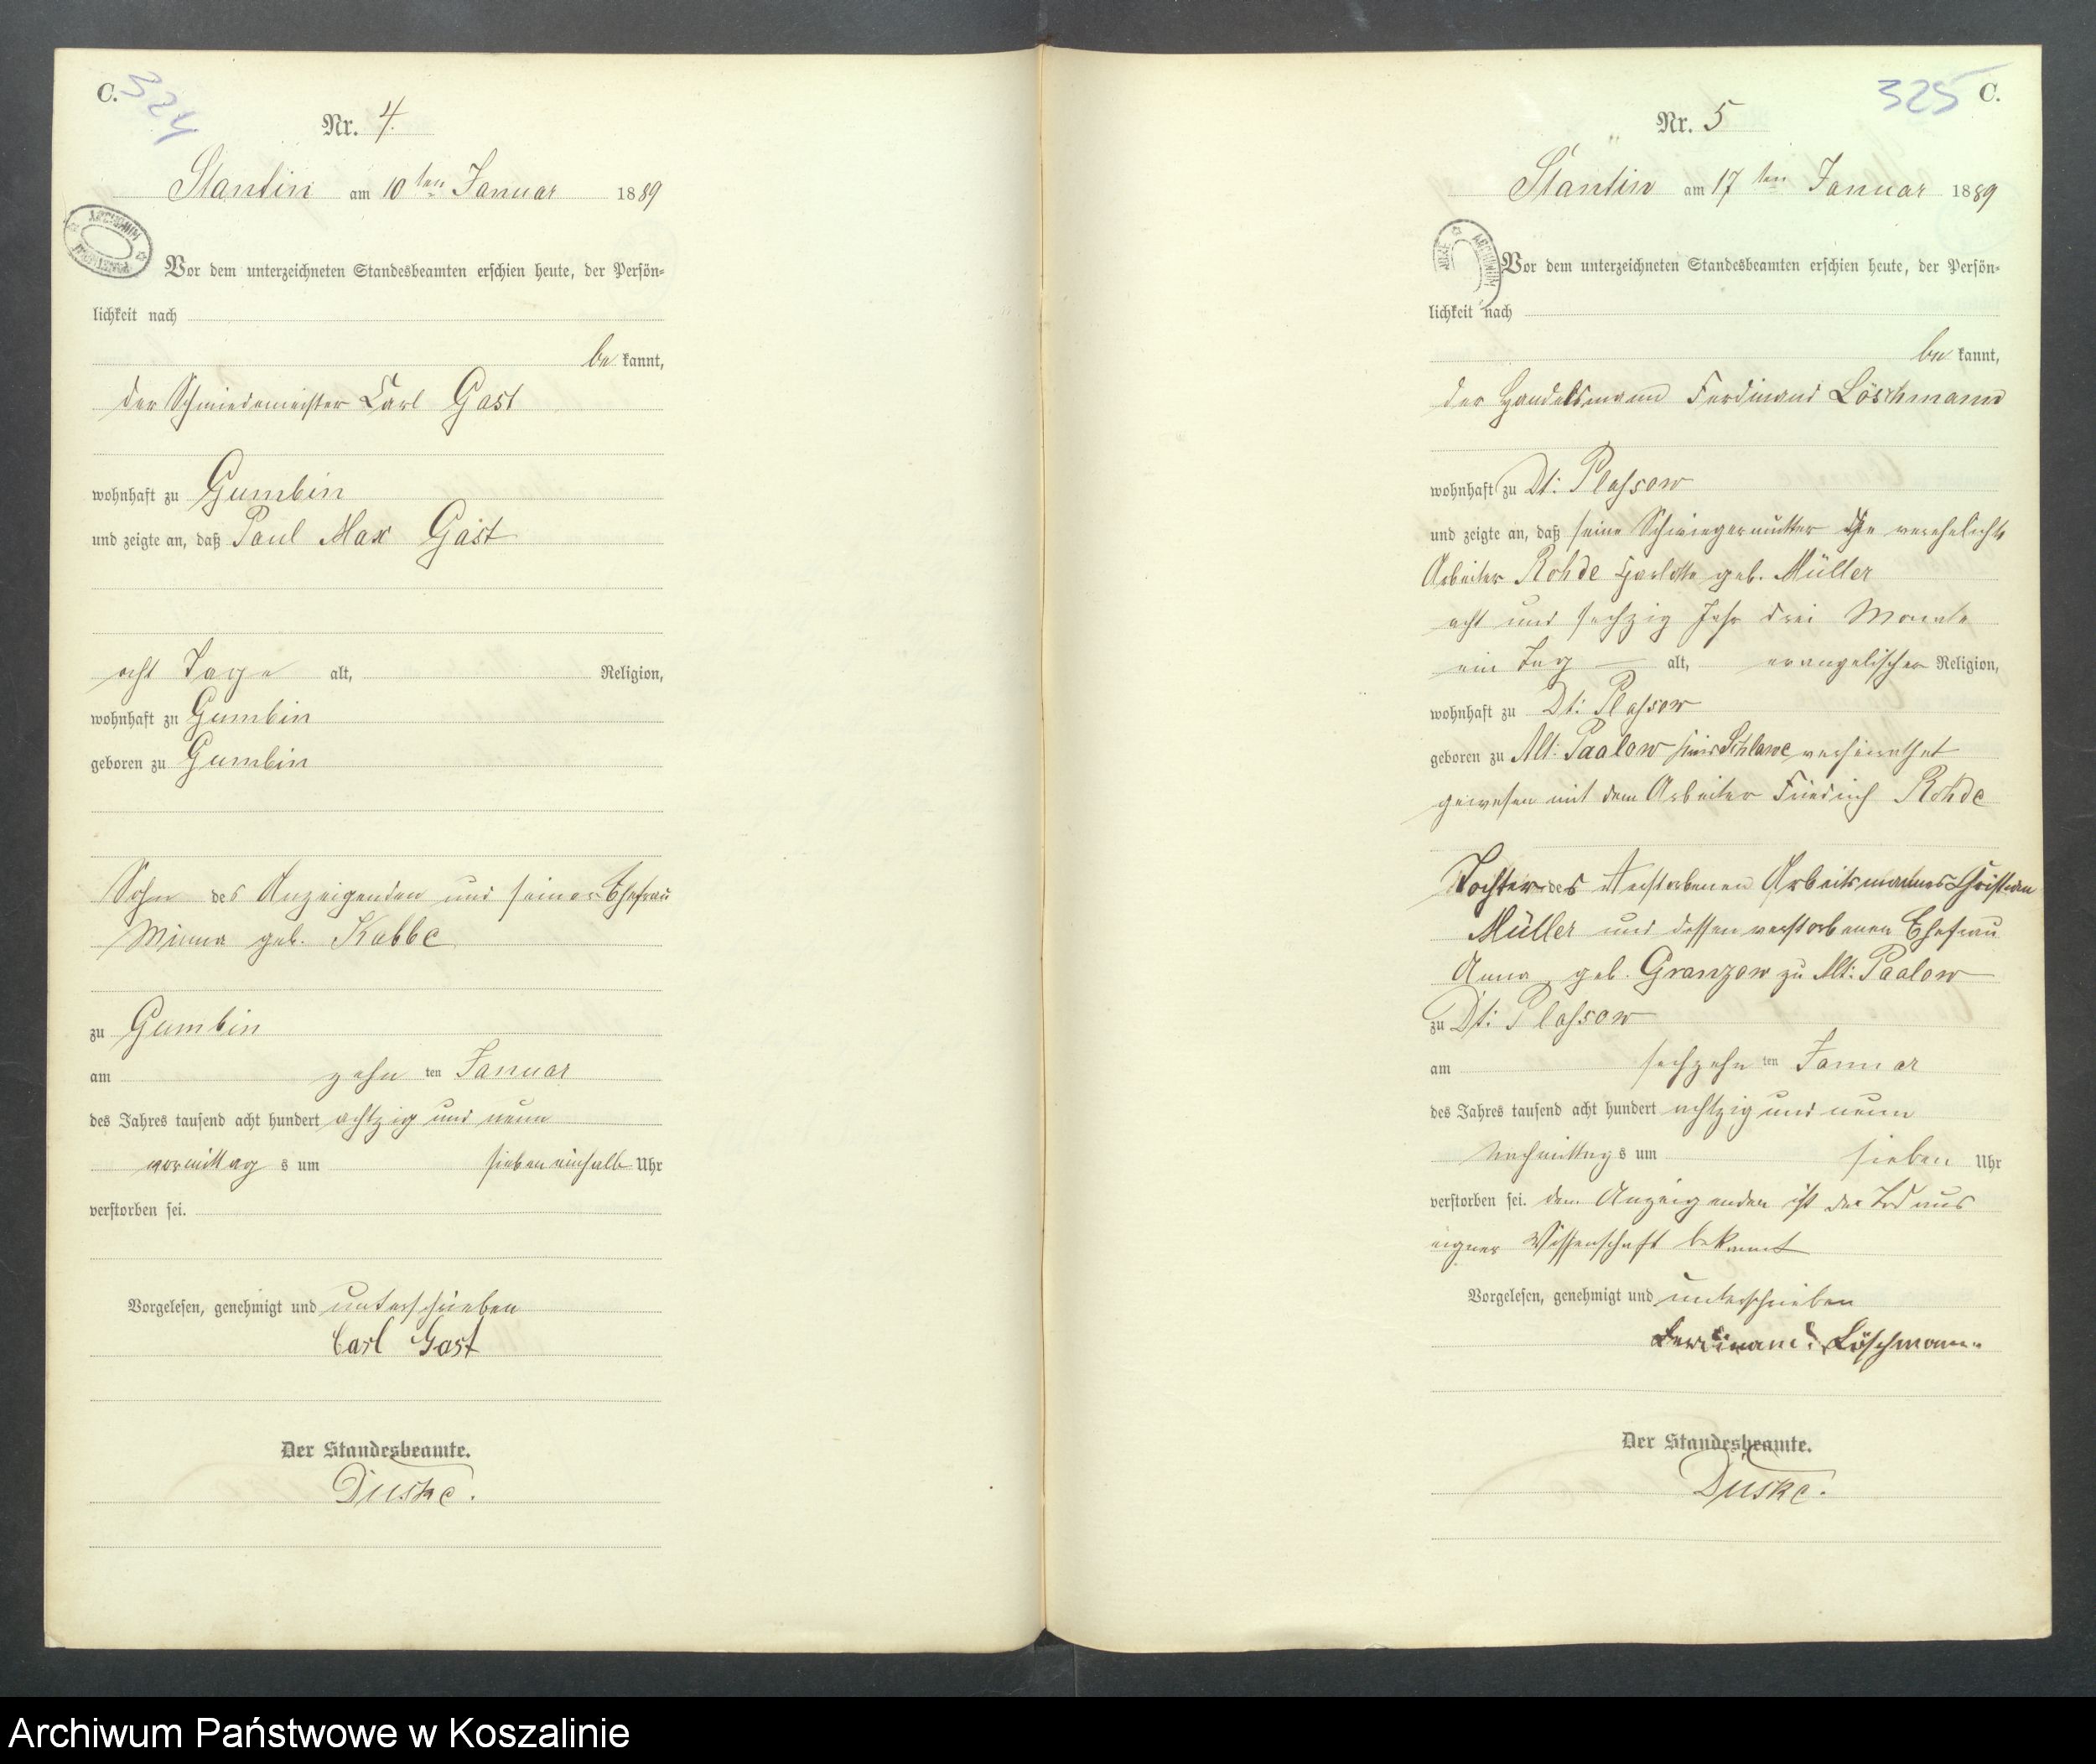 C. 324
Nr. 4.
Stantin am 10ten Januar 1889
ARCHIWUM
Vor dem unterzeichneten Standesbeamten erschien heute, der Persön-
lichkeit nach
be kannt,
der Schmiedemeister Carl Gast
wohnhaft zu Gumbin
und zeigte an, daß Paul Max Gast
acht Tage alt, Religion,
wohnhaft zu Gumbin
geboren zu Gumbin
Sohn des Anzeigenden und seiner Ehefrau
Minna geb. Kabbe
zu Gumbin
am zehn ten Januar
des Jahres tausend acht hundert achtzig und neun
vormittag s um sieben einhalb Uhr
verstorben sei.
Vorgelesen, genehmigt und unterschrieben
Carl Gast
Der Standesbeamte.
Duske.
325 C.
Nr. 5
Stantin am 17ten Januar 1889
ARCHIWUM
Vor dem unterzeichneten Standesbeamten erschien heute, der Persön-
lichkeit nach
be kannt,
der Handelsmann Ferdinand Löschmann
wohnhaft zu Dt: Plassow
und zeigte an, daß seine Schwiegermutter die verehelichte
Arbeiter Rohde geb. Müller
acht und sechzig Jahr drei Monate
ein Tag — alt, evangelischer Religion,
wohnhaft zu Dt: Plassow
geboren zu Alt: Paalow Schlawe verheirathet
gewesen mit dem Arbeiter Friedrich Rohde
Tochter des verstorbenen Arbeitsmannes Christian
Müller und dessen verstorbenen Ehefrau
Anna geb. Granzow zu Alt: Paalow
zu Dt: Plassow
am sechzehn ten Januar
des Jahres tausend acht hundert achtzig und neun
Nachmittag s um sieben Uhr
verstorben sei. dem Anzeigenden ist der Tod aus
eigner Wissenschaft bekannt
Vorgelesen, genehmigt und unterschrieben
Ferdinand Löschmann
Der Standesbeamte.
Duske.
Archiwum Państwowe w Koszalinie